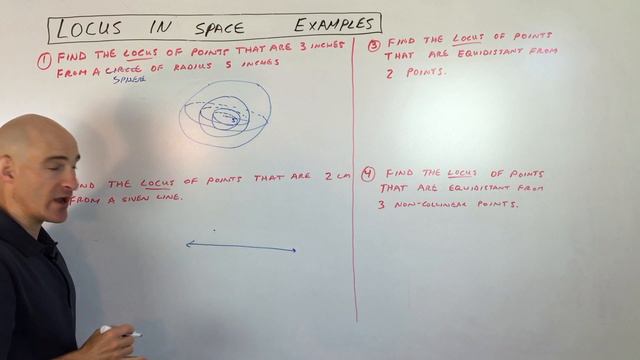 LOCUS IN SPACE EXAMPLES
① FIND THE LOCUS OF POINTS THAT ARE 3 INCHES
FROM A CIRCLE OF RADIUS 5 INCHES
SPHERE
5
IND THE LOCUS OF POINTS THAT ARE 2 CM
FROM A GIVEN LINE.
③ FIND THE LOCUS OF POINTS
THAT ARE EQUIDISTANT FROM
2 POINTS.
④ FIND THE LOCUS OF POINTS
THAT ARE EQUIDISTANT FROM
3 NON-COLLINEAR POINTS.